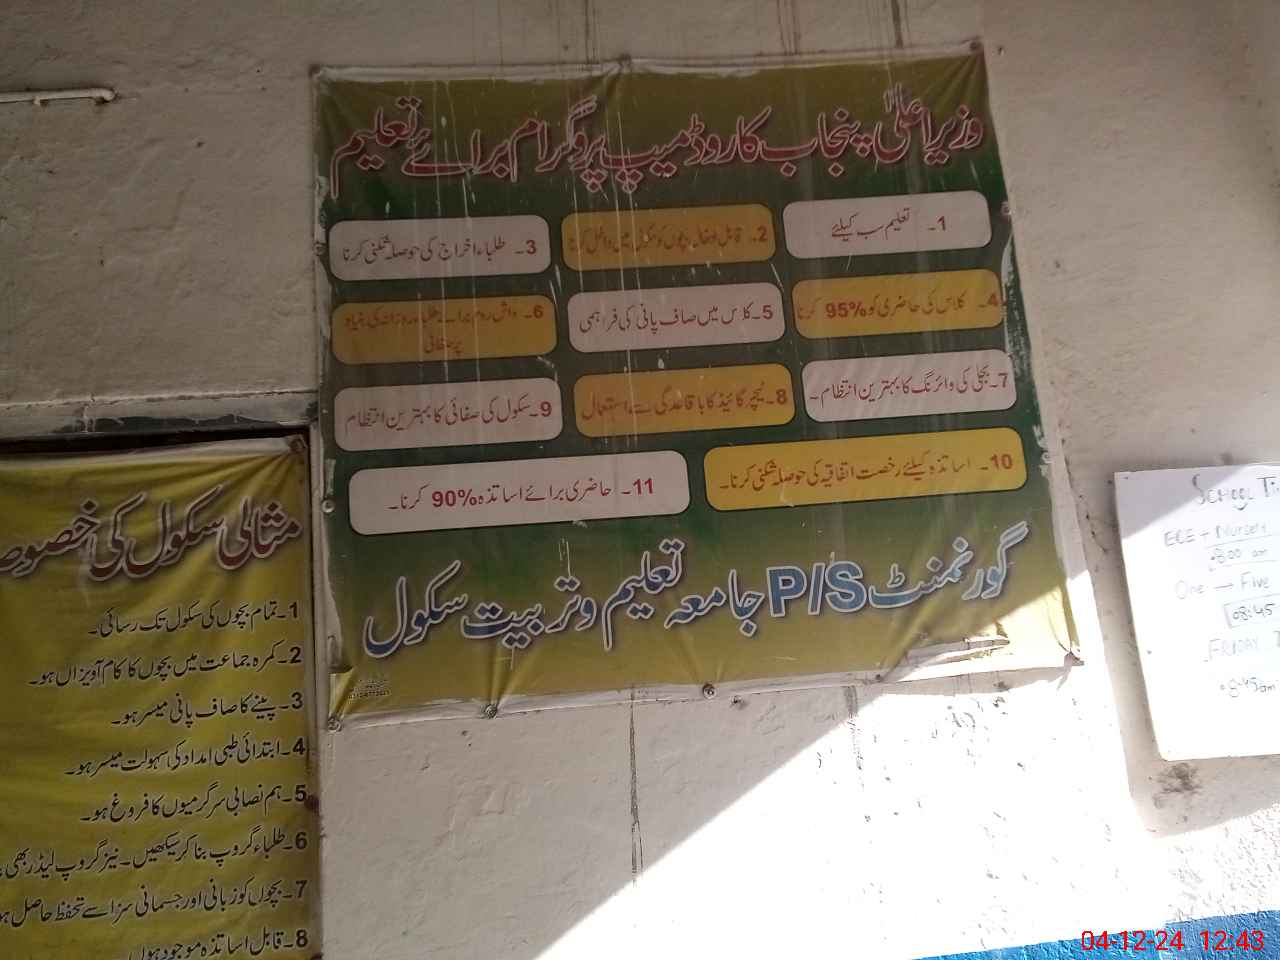 وزیراعلیٰ پنجاب کا روڈ میپ پروگرام برائے تعلیم
1۔ تعلیم سب کیلئے
2۔ قابل داخلہ بچوں کو سکول میں داخل کرنا
3۔ طلباء اخراج کی حوصلہ شکنی کرنا
4۔ کلاس کی حاضری کو 95% کرنا
5۔ کلاس میں صاف پانی کی فراہمی
6۔ واش روم برائے طلباء روزانہ کی بنیاد
پر صفائی
7۔ بجلی کی وائرنگ کا بہترین انتظام۔
8۔ ٹیچر گائیڈ کا باقاعدگی سے استعمال
9۔ سکول کی صفائی کا بہترین انتظام
10۔ اساتذہ کیلئے رخصت اتفاقیہ کی حوصلہ شکنی کرنا۔
11۔ حاضری برائے اساتذہ 90% کرنا۔
گورنمنٹ P/S جامعہ تعلیم و تربیت سکول
مثالی سکول کی
1۔ تمام بچوں کی سکول تک رسائی۔
2۔ کمرہ جماعت میں بچوں کا کام آویزاں ہو۔
3۔ پینے کا صاف پانی میسر ہو۔
4۔ ابتدائی طبی امداد کی سہولت میسر ہو۔
5۔ ہم نصابی سرگرمیوں کا فروغ ہو۔
6۔ طلباء گروپ بنا کر سیکھیں۔ نیز گروپ لیڈر بھی
7۔ بچوں کو زبانی اور جسمانی سزا سے تحفظ حاصل
8۔ قابل اساتذہ موجود ہوں
SCHOOL Ti
ECE + Nursery
8:00 am
One → Five
08:45
FRIDAY
08:45am
04-12-24 12:43